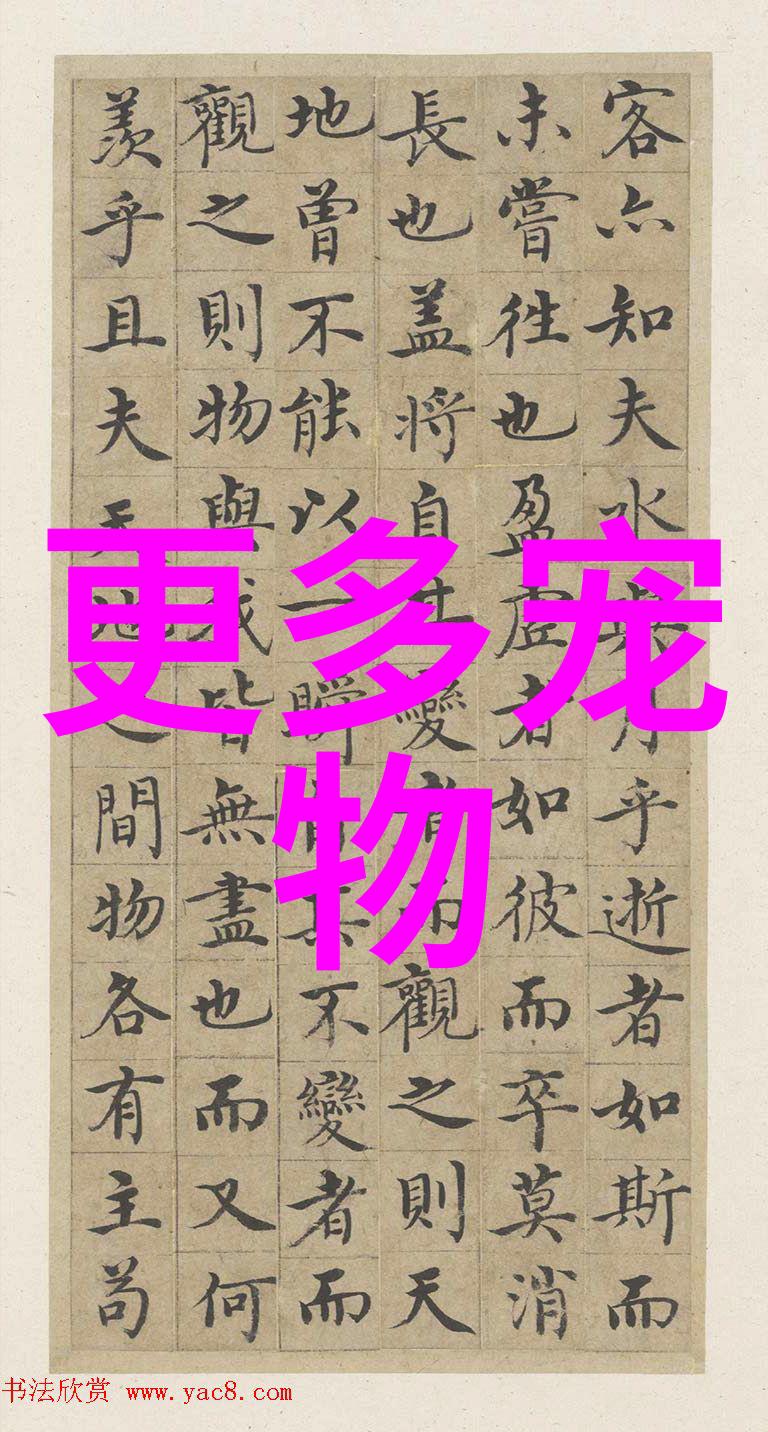 客亦知夫水與月乎逝者如斯而
未嘗往也盈虛者如彼而卒莫消
長也盖將自其變者而觀之則天
地曾不能以一瞬自其不變者而
觀之則物與我皆無盡也而又何
羨乎且夫天地之間物各有主苟
更多宠
物
书法欣赏 www.yac8.com